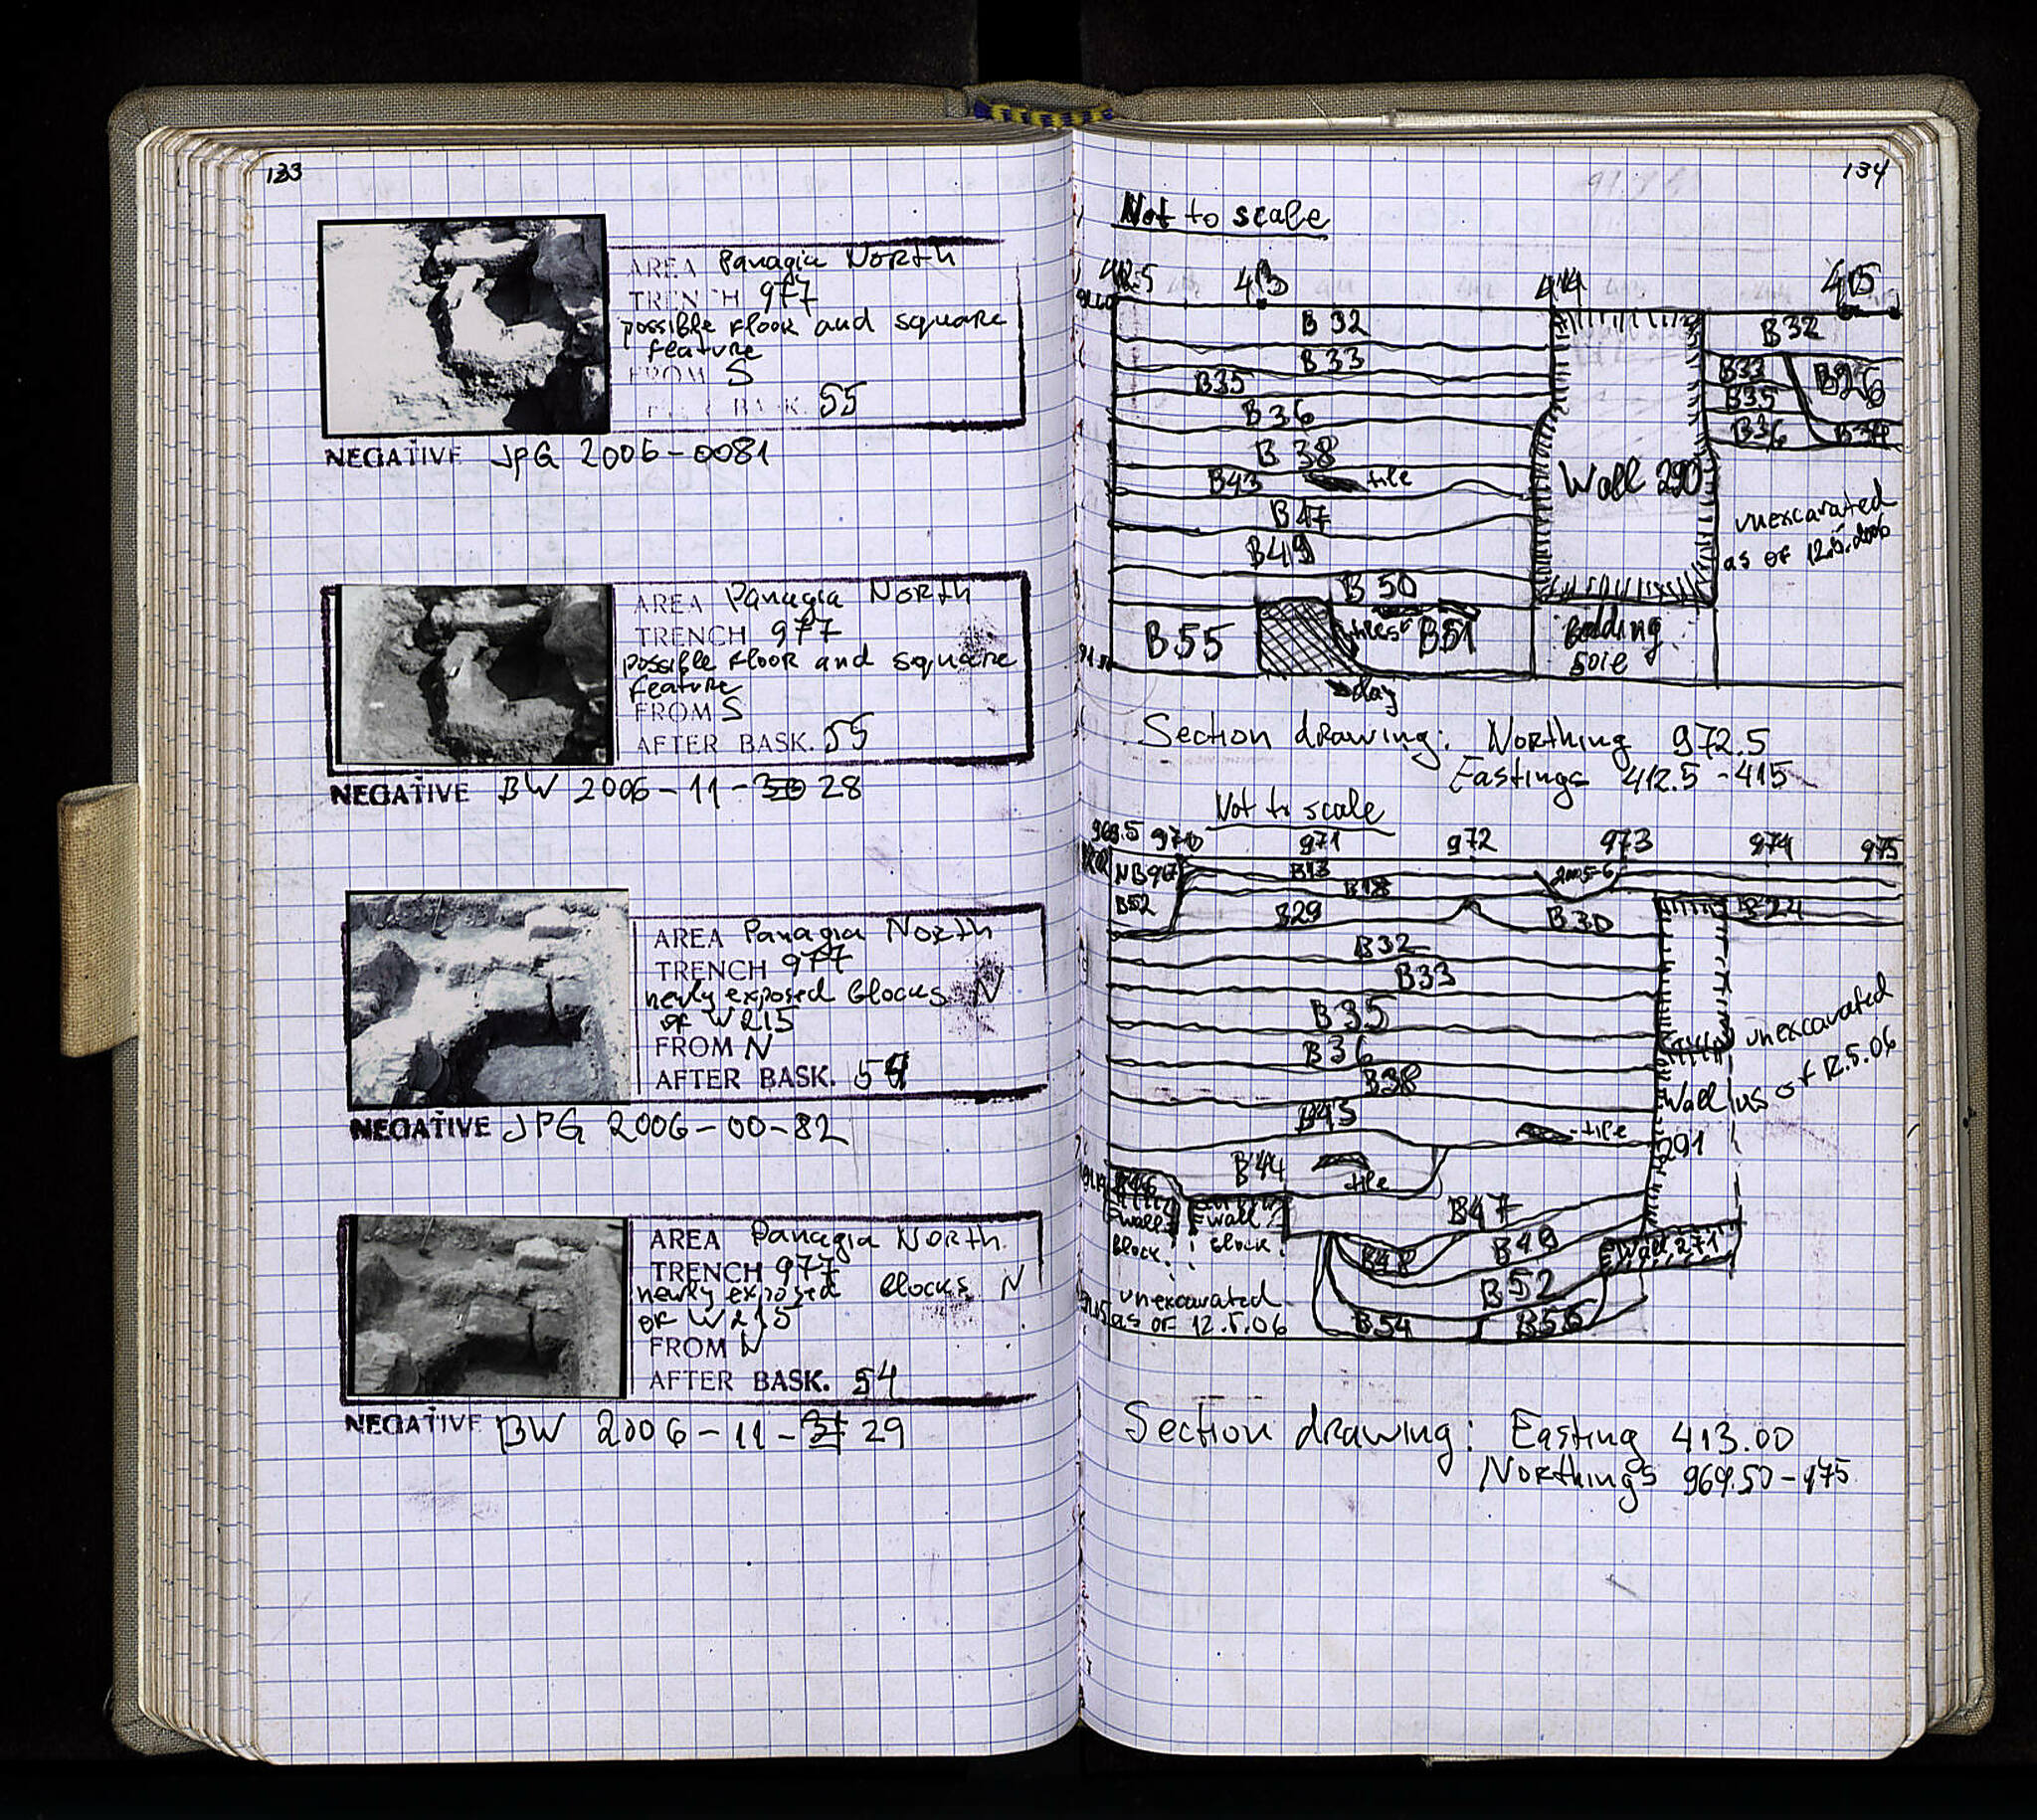 133
AREA Panagia North
TRENCH 977
possible floor and square
feature
FROM S
BASK. 55
NEGATIVE JPG 2006-0081
AREA Panagia North
TRENCH 977
possible floor and square
feature
FROM S
AFTER BASK. 55
NEGATIVE BW 2006-11-30 28
AREA Panagia North
TRENCH 977
newly exposed blocks N
of W215
FROM N
AFTER BASK. 54
NEGATIVE JPG 2006-00-82
AREA Panagia North
TRENCH 977
newly exposed blocks N
of W215
FROM N
AFTER BASK. 54
NEGATIVE BW 2006-11-31 29
134
Not to scale
412.5 413 414 415
B 32 B32
B 33 B33 B26
B35 B35
B36 B36 B34
B 38
B43 tile Wall 290
B47 unexcavated
B49 as of 12.5.2006
B 50
B55 tiles B51 Bedding
soil
clay
Section drawing: Northing 972.5
Eastings 412.5-415
Not to scale
969.5 970 971 972 973 974 975
NB907 B13 2005-6
B52 B18
B29 B30 B24
B32
B33
B35 unexcavated
B36
B38 Wall as of 12.5.06
B43 tile 291
B44 tile
B46 B47
wall block wall block B48 B49 Wall 271
B52
unexcavated
as of 12.5.06 B54 B56
Section drawing: Easting 413.00
Northings 969.50-975